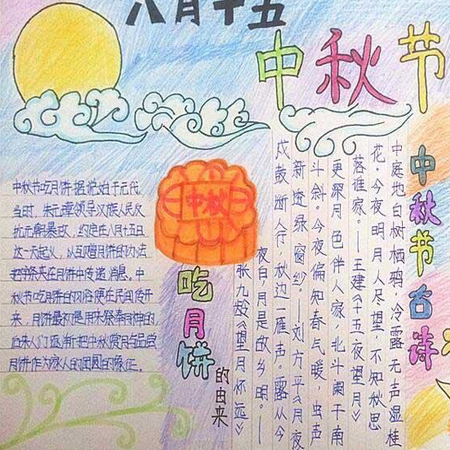 八月十五
中秋节
中秋节吃月饼据说始于元代,
当时,朱元璋领导汉族人民反
抗元朝暴政,约定在八月十五日
这一天起义,以互赠月饼的办法
把字条夹在月饼中传递消息。中
秋节吃月饼的习俗便在民间传开
来。月饼最初是用来祭奉月神的
后来人们逐渐把中秋赏月与品尝
月饼作为家人的团圆的象征。
中秋
吃月饼
的由来
中秋节古诗
中庭地白树栖鸦,冷露无声湿桂
花。今夜明月人尽望,不知秋思
落谁家。—王建《十五夜望月》
更深月色伴人家,北斗阑干南
斗斜。今夜偏知春气暖,虫声
新透绿窗纱。—刘方平《月夜
戍鼓断人行,秋边一雁声。露从今
夜白,月是故乡明。—
张九龄《望月怀远》